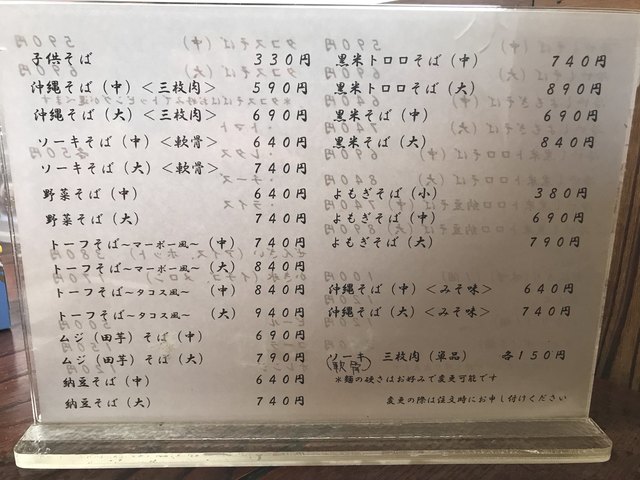 子供そば 330円
沖縄そば（中）＜三枚肉＞ 590円
沖縄そば（大）＜三枚肉＞ 690円
ソーキそば（中）＜軟骨＞ 640円
ソーキそば（大）＜軟骨＞ 740円
野菜そば（中） 640円
野菜そば（大） 740円
トーフそば～マーボー風～（中） 740円
トーフそば～マーボー風～（大） 840円
トーフそば～タコス風～（中） 840円
トーフそば～タコス風～（大） 940円
ムジ（田芋）そば（中） 690円
ムジ（田芋）そば（大） 790円
納豆そば（中） 640円
納豆そば（大） 740円
黒米トロロそば（中） 740円
黒米トロロそば（大） 890円
黒米そば（中） 690円
黒米そば（大） 840円
よもぎそば（小） 380円
よもぎそば（中） 690円
よもぎそば（大） 790円
沖縄そば（中）＜みそ味＞ 640円
沖縄そば（大）＜みそ味＞ 740円
ソーキ 三枚肉（単品） 各150円
（軟骨）
＊麺の硬さはお好みで変更可能です
変更の際は注文時にお申し付けください